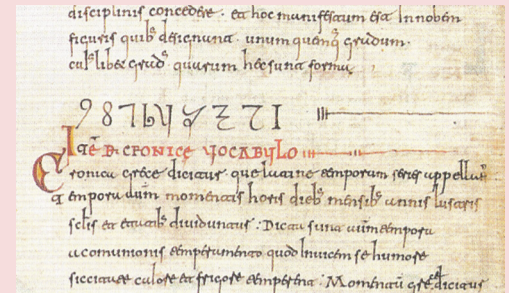 disciplinis concedere · et hoc manifestum est In nobem
figuris quibꝫ designant · unumquemqꝫ gradum ·
cuiꝰlibet gradꝰ · quarum hec sunt forma
9 8 7 6 5 4 3 2 1
Itē DE CRONICE VOCABULO
Cronica grece dicitur · que latine temporum series appellatur
temporum momentis horis diebꝫ mensibꝫ annis lustris
sclis et etatibꝫ dividuntur : Dicta sunt autem tempora
a comunionis temperamento quod Invicem se humore
siccitate calore et frigore temperent : Momentū grece dicitur